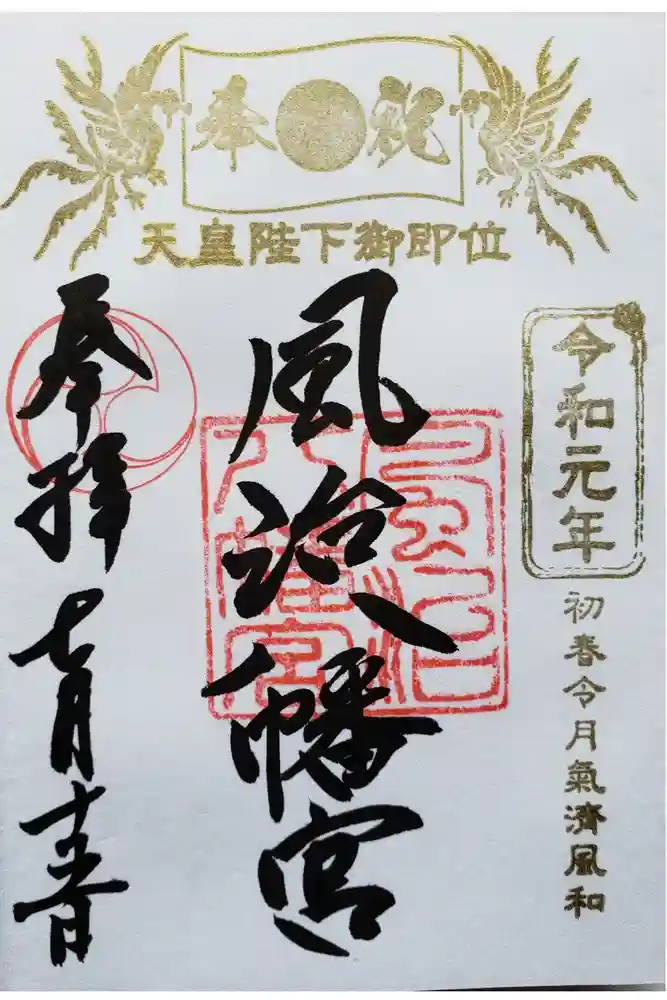 奉祝
天皇陛下御即位
令和元年
初春令月氣淑風和
風治八幡宮
風治八幡宮
奉拝
七月十五日